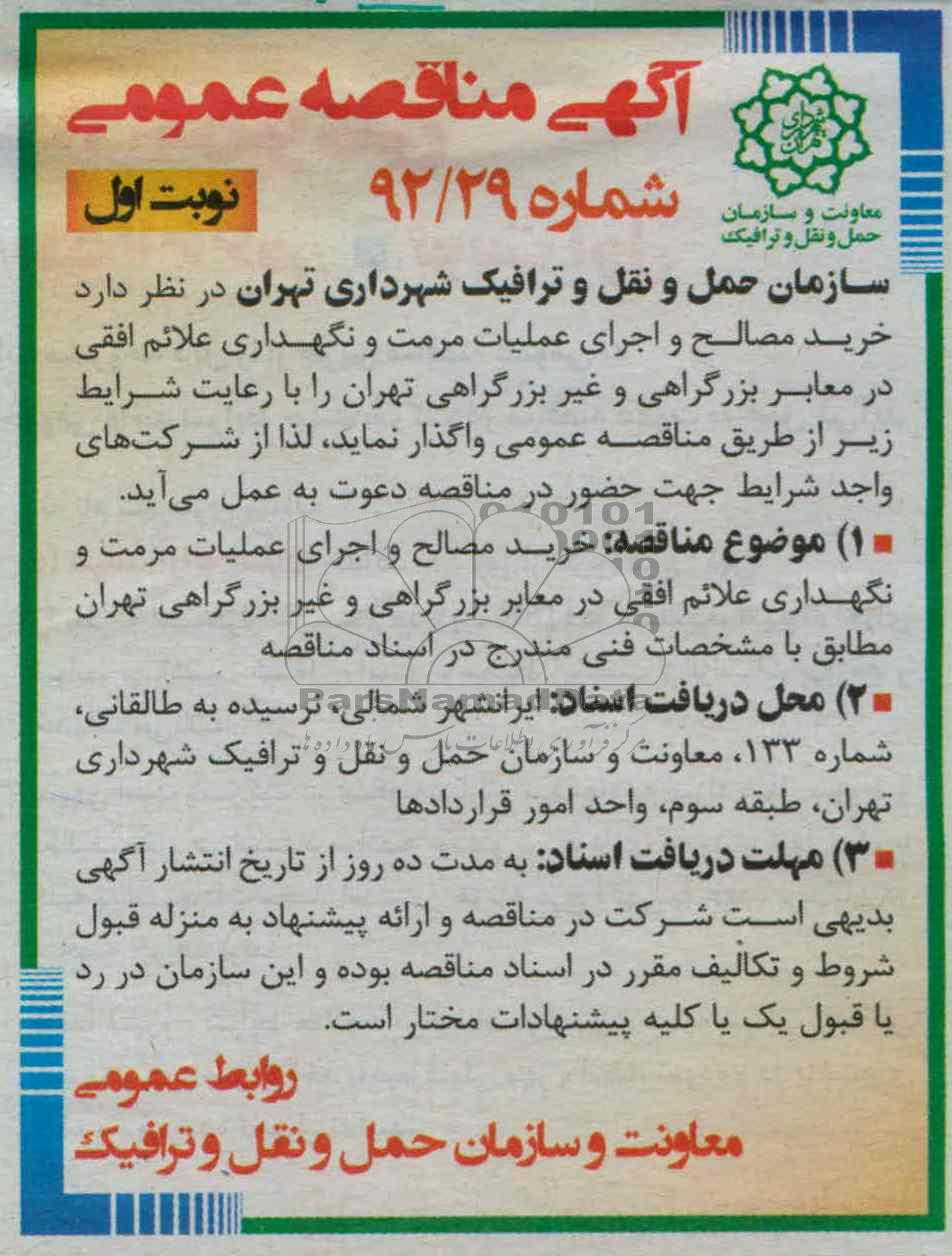 آگهی مناقصه عمومی
شماره ۹۲/۲۹
نوبت اول
شهرداری تهران
معاونت و سازمان
حمل و نقل و ترافیک
سازمان حمل و نقل و ترافیک شهرداری تهران در نظر دارد
خرید مصالح و اجرای عملیات مرمت و نگهداری علائم افقی
در معابر بزرگراهی و غیر بزرگراهی تهران را با رعایت شرایط
زیر از طریق مناقصه عمومی واگذار نماید، لذا از شرکت‌های
واجد شرایط جهت حضور در مناقصه دعوت به عمل می‌آید.
۱) موضوع مناقصه: خرید مصالح و اجرای عملیات مرمت و
نگهداری علائم افقی در معابر بزرگراهی و غیر بزرگراهی تهران
مطابق با مشخصات فنی مندرج در اسناد مناقصه
۲) محل دریافت اسناد: ایرانشهر شمالی، نرسیده به طالقانی،
شماره ۱۳۳، معاونت و سازمان حمل و نقل و ترافیک شهرداری
تهران، طبقه سوم، واحد امور قراردادها
۳) مهلت دریافت اسناد: به مدت ده روز از تاریخ انتشار آگهی
بدیهی است شرکت در مناقصه و ارائه پیشنهاد به منزله قبول
شروط و تکالیف مقرر در اسناد مناقصه بوده و این سازمان در رد
یا قبول یک یا کلیه پیشنهادات مختار است.
روابط عمومی
معاونت و سازمان حمل و نقل و ترافیک
ParsNamadData
مرکز فرآوری اطلاعات پارس نماد داده ها